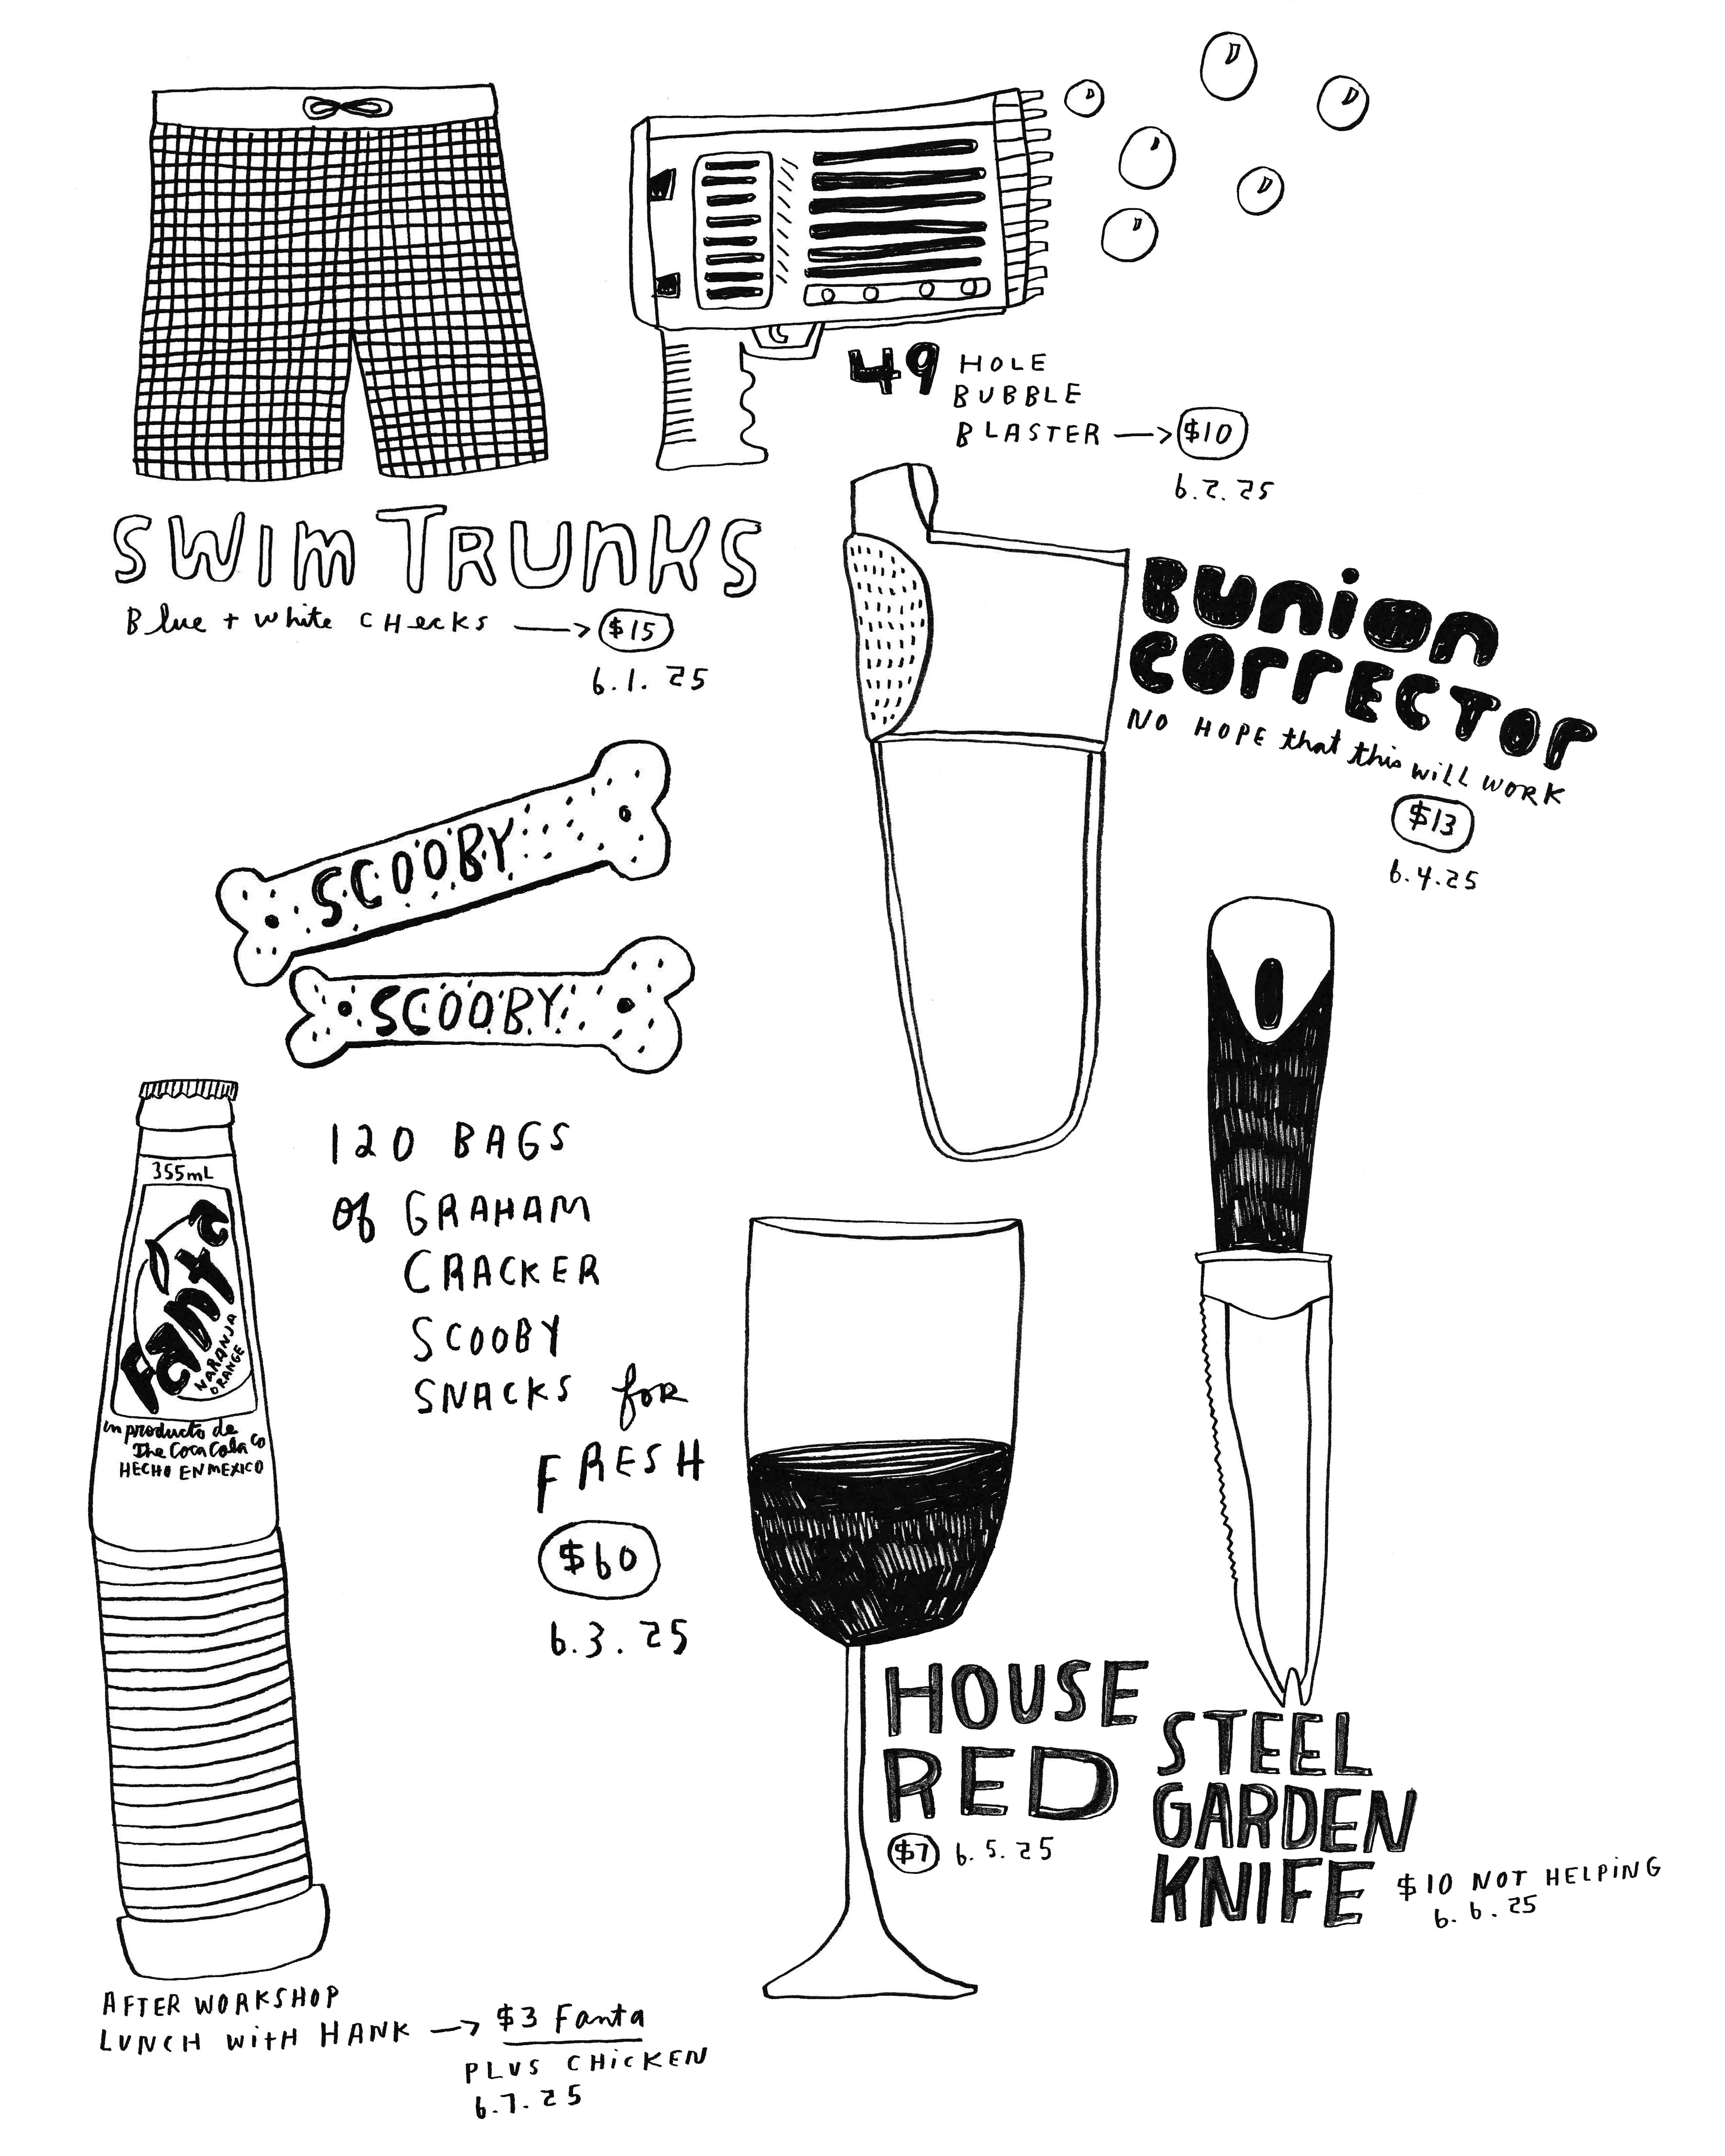 SWIM TRUNKS
Blue + white CHecks → $15
6.1.25
49 HOLE
BUBBLE
BLASTER → $10
6.2.25
BUNION
CORRECTOR
NO HOPE that this will WORK
$13
6.4.25
SCOOBY
SCOOBY
120 BAGS
of GRAHAM
CRACKER
SCOOBY
SNACKS for
FRESH
$60
6.3.25
355mL
Fanta
NARANJA
ORANGE
un producto de
The Coca Cola Co
HECHO EN MEXICO
HOUSE
RED
$7 6.5.25
STEEL
GARDEN
KNIFE $10 NOT HELPING
6.6.25
AFTER WORKSHOP
LUNCH WITH HANK → $3 Fanta
PLUS CHICKEN
6.7.25